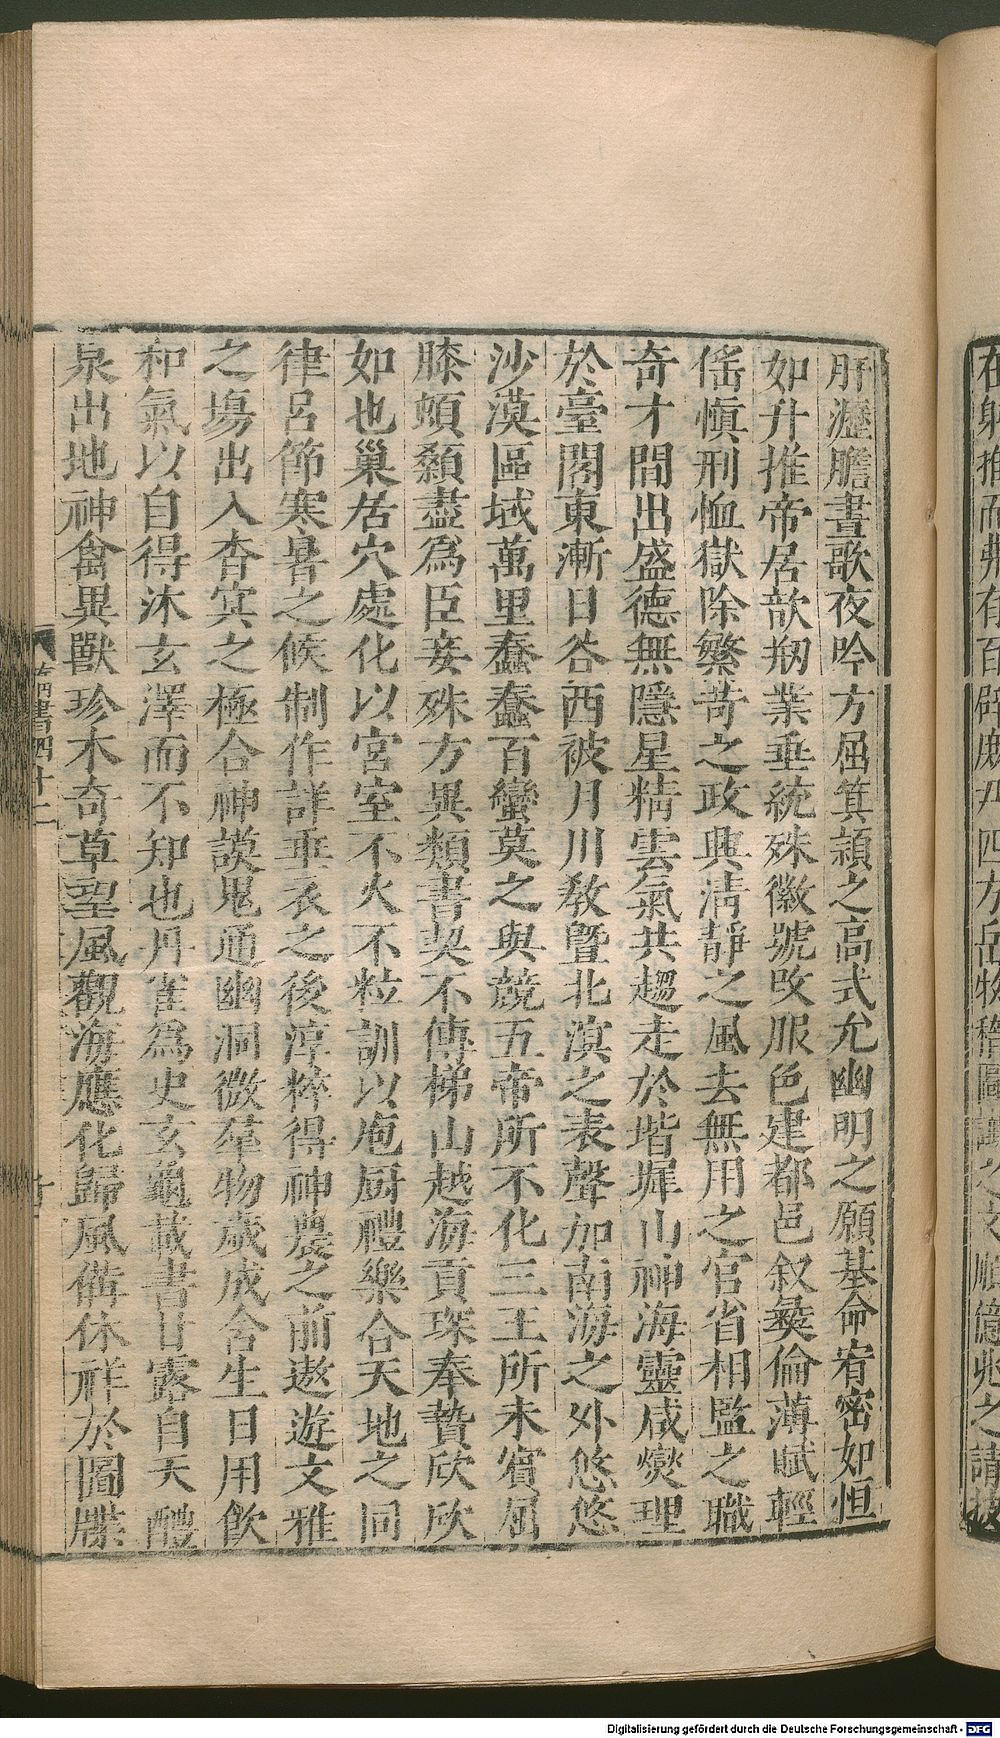 肝瀝膽晝歌夜吟方屈箕潁之高式允幽明之願基命宥密如恒
如升推帝居歆剏業垂統殊徽號改服色建都邑叙彝倫薄賦輕
徭愼刑恤獄除繁苛之政興清靜之風去無用之官省相監之職
奇才間出盛德無隱星精雲氣共趨走於堦墀山神海靈咸燮理
於臺閣東漸日谷西被月川教曁北溟之表聲加南海之外悠悠
沙漠區域萬里蠢蠢百蠻莫之與競五帝所不化三王所未賓屈
膝頓顙盡爲臣妾殊方異類書契不傳梯山越海貢琛奉贄欣欣
如也巢居穴處化以宮室不火不粒訓以庖厨禮樂合天地之同
律呂節寒暑之候制作詳垂衣之後淳粹得神農之前遨遊文雅
之塲出入杳冥之極合神謨鬼通幽洞微羣物歲成含生日用飲
和氣以自得沐玄澤而不知也丹雀爲史玄龜載書甘露自天醴
泉出地神禽異獸珍木奇草望風觀海應化歸風備休祥於圖牒
四十二
Digitalisierung gefördert durch die Deutsche Forschungsgemeinschaft - DFG